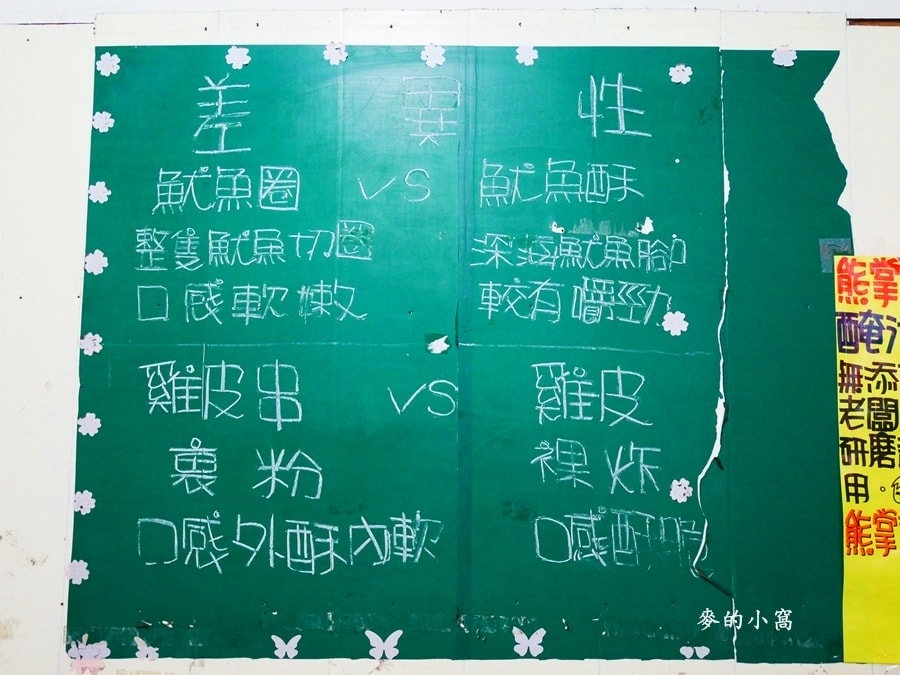 差異性
魷魚圈 VS 魷魚酥
整隻魷魚切圈 深海魷魚腳
口感軟嫩 較有嚼勁
雞皮串 VS 雞皮
裹粉 裸炸
口感外酥內軟 口感酥脆
熊掌
醃汁
無添
老闆
研磨
用。
熊掌
麥的小窩